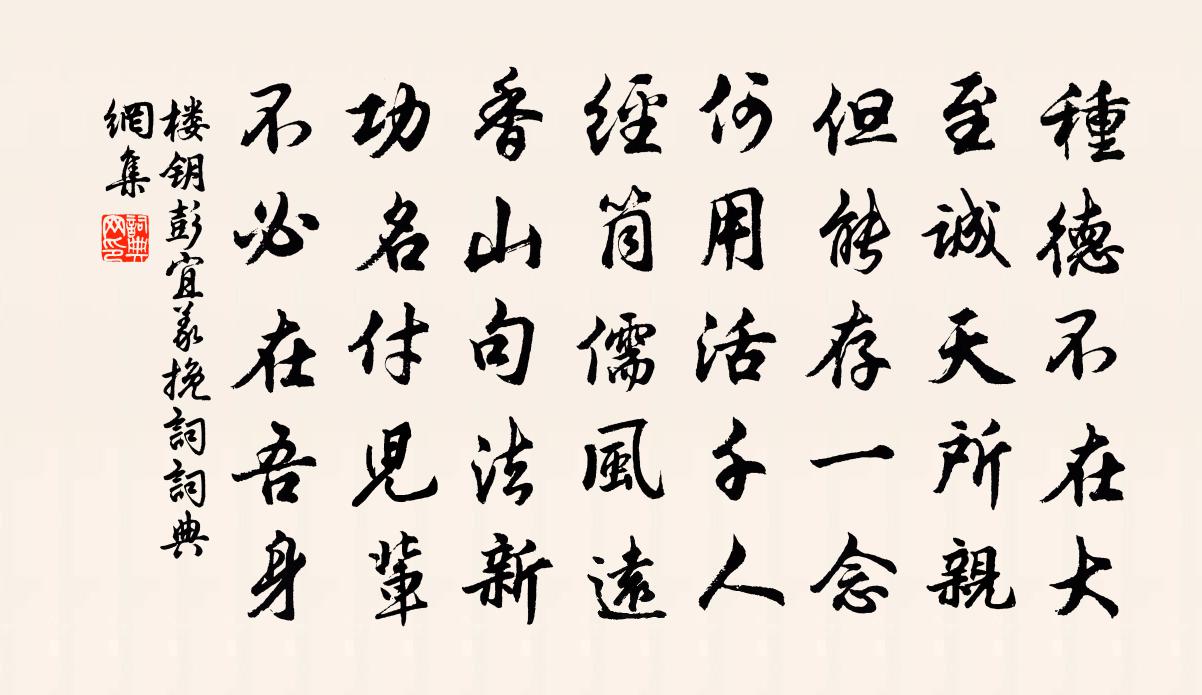 種德不在大
至誠天所親
但能存一念
何用活千人
經笥儒風遠
香山句法新
功名付兒輩
不必在吾身
楼钥彭宜义挽詞詞典
網集
詞典
网印